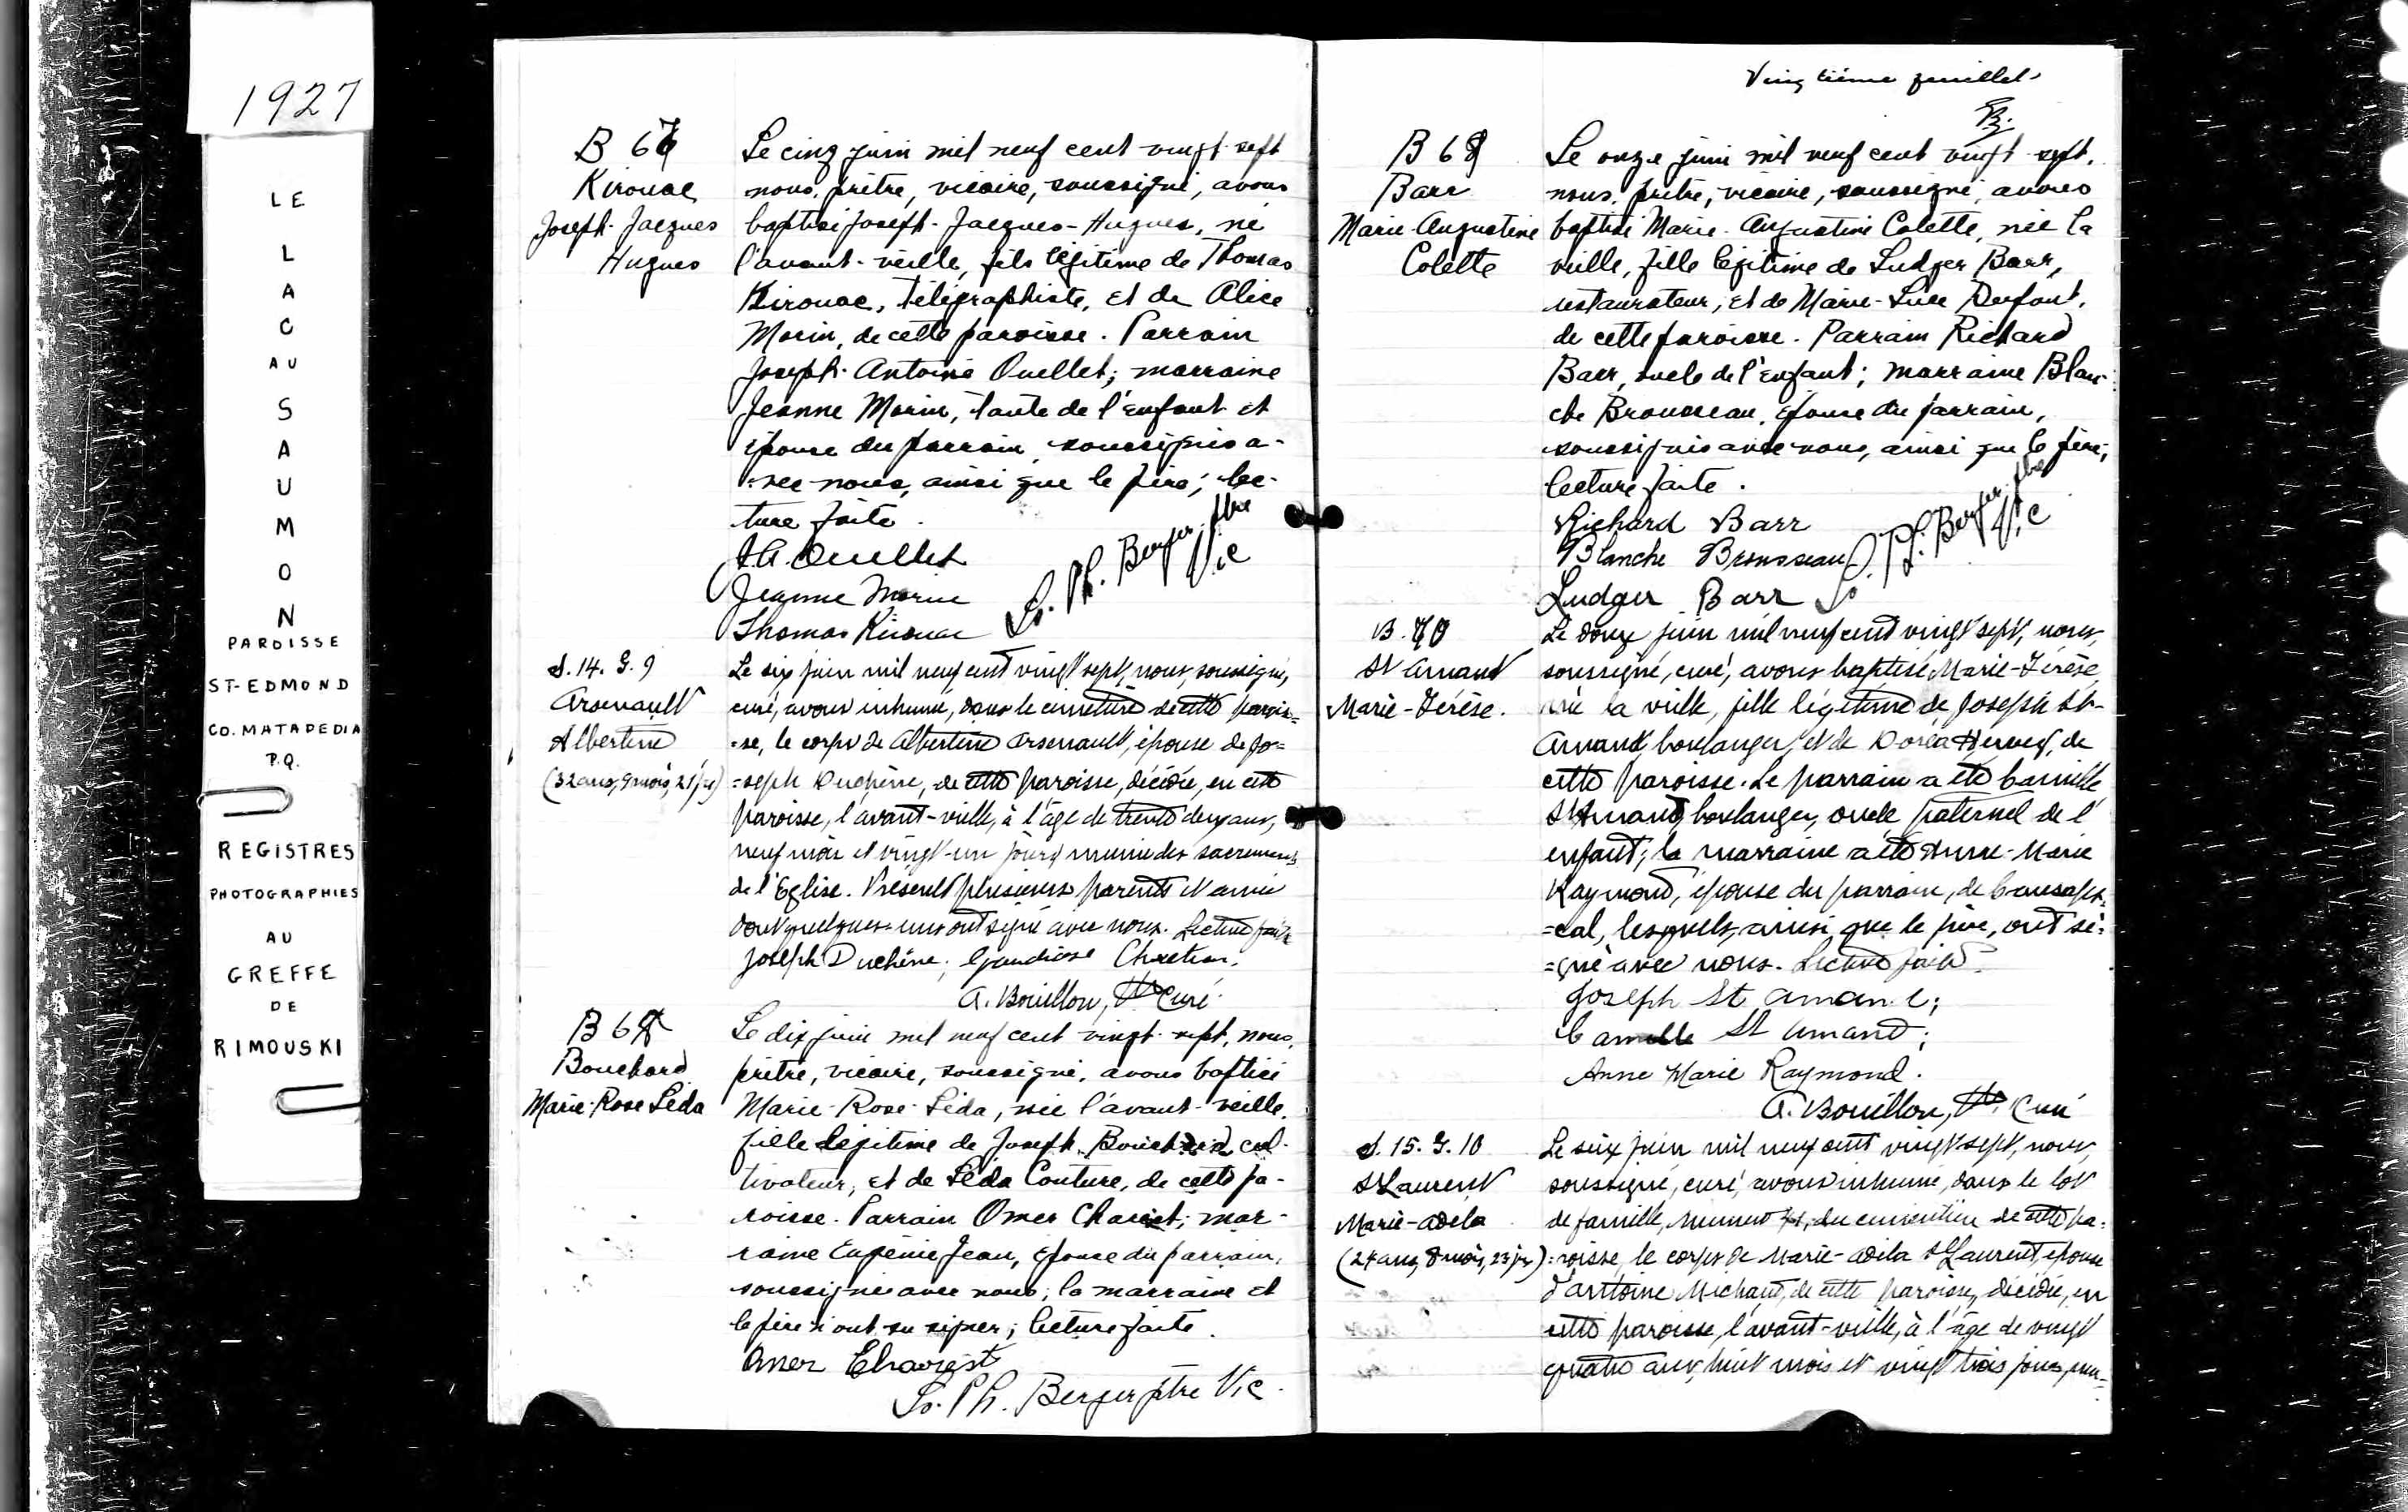 1927
LE
LAC
AU
SAUMON
PAROISSE
ST-EDMOND
CO. MATAPEDIA
P.Q.
REGISTRES
PHOTOGRAPHIES
AU
GREFFE
DE
RIMOUSKI
B 67
Kirouac
Joseph-Jacques
Hugues
Le cinq juin mil neuf cent vingt-sept
nous, prêtre, vicaire, soussigné, avons
baptisé Joseph-Jacques-Hugues, né
l'avant-veille, fils légitime de Thomas
Kirouac, télégraphiste, et de Alice
Morin, de cette paroisse. Parrain
Joseph-Antoine Ouellet; marraine
Jeanne Morin, tante de l'enfant et
épouse du parrain, soussignés a-
vec nous, ainsi que le père; lec-
ture faite.
J.A. Ouellet
Jeanne Morin
Thomas Kirouac
Ls. Ph. Berger, ptre
Vic
S. 14. G. 9
Arsenault
Albertine
(32 ans, 9 mois, 21 jrs)
Le six juin mil neuf cent vingt sept, nous, soussigné,
curé, avons inhumé, dans le cimetière de cette parois=
=se, le corps de Albertine Arsenault, épouse de Jo=
=seph Duchêne, de cette paroisse, décédée, en cette
paroisse, l'avant-veille, à l'âge de trente deux ans,
neuf mois et vingt-un jours munie des sacrements
de l'Eglise. Présents plusieurs parents et amis
dont quelques-uns ont signé avec nous. Lecture faite
Joseph Duchêne; Gaudiose Chretien.
A. Bouillon, Ptre Curé.
B 68
Bouchard
Marie-Rose Léda
Le dix juin mil neuf cent vingt-sept, nous,
prêtre, vicaire, soussigné, avons baptisé
Marie-Rose-Léda, née l'avant-veille,
fille légitime de Joseph Bouchard cul-
tivateur, et de Léda Couture, de cette pa-
roisse. Parrain Omer Charest; mar-
raine Eugénie Jean, épouse du parrain,
soussigné avec nous; la marraine et
le père n'ont su signer; lecture faite.
Omer Charest
Ls. Ph. Berger ptre Vic.
Vingtième feuillet
B 69
Barr
Marie-Augustine
Colette
Le onze juin mil neuf cent vingt-sept,
nous, prêtre, vicaire, soussigné, avons
baptisé Marie-Augustine Colette, née la
veille, fille légitime de Ludger Barr,
restaurateur, et de Marie-Luce Dufour,
de cette paroisse. Parrain Richard
Barr, oncle de l'enfant; marraine Blan-
che Brousseau, épouse du parrain,
soussignés avec nous, ainsi que le père;
lecture faite.
Richard Barr
Blanche Brousseau
Ludger Barr
Ls. Ph. Berger, ptre
Vic
B. 70
St Amand
Marie-Térèse.
Le douze juin mil neuf cent vingt sept, nous,
soussigné, curé, avons baptisé Marie-Térèse,
née la veille, fille légitime de Joseph St-
Amand, boulanger, et de Doréa Hervey, de
cette paroisse. Le parrain a été Camille
St Amand, boulanger, oncle paternel de l'
enfant; la marraine a été Anne-Marie
Raymond, épouse du parrain, de Causaps=
=cal, lesquels, ainsi que le père, ont si=
=gné avec nous. Lecture faite.
Joseph St Amand;
Camille St Amand;
Anne Marie Raymond.
A. Bouillon, Ptre Curé
S. 15. G. 10
St Laurent
Marie-Adéla
(24 ans, 8 mois, 23 jrs)
Le seize juin mil neuf cent vingt sept, nous,
soussigné, curé, avons inhumé, dans le lot
de famille, numéro du cimetière de cette pa=
=roisse, le corps de Marie-Adéla St Laurent, épouse
d'Antoine Michaud, de cette paroisse, décédée, en
cette paroisse, l'avant-veille, à l'âge de vingt
quatre ans, huit mois et vingt trois jours, mu-